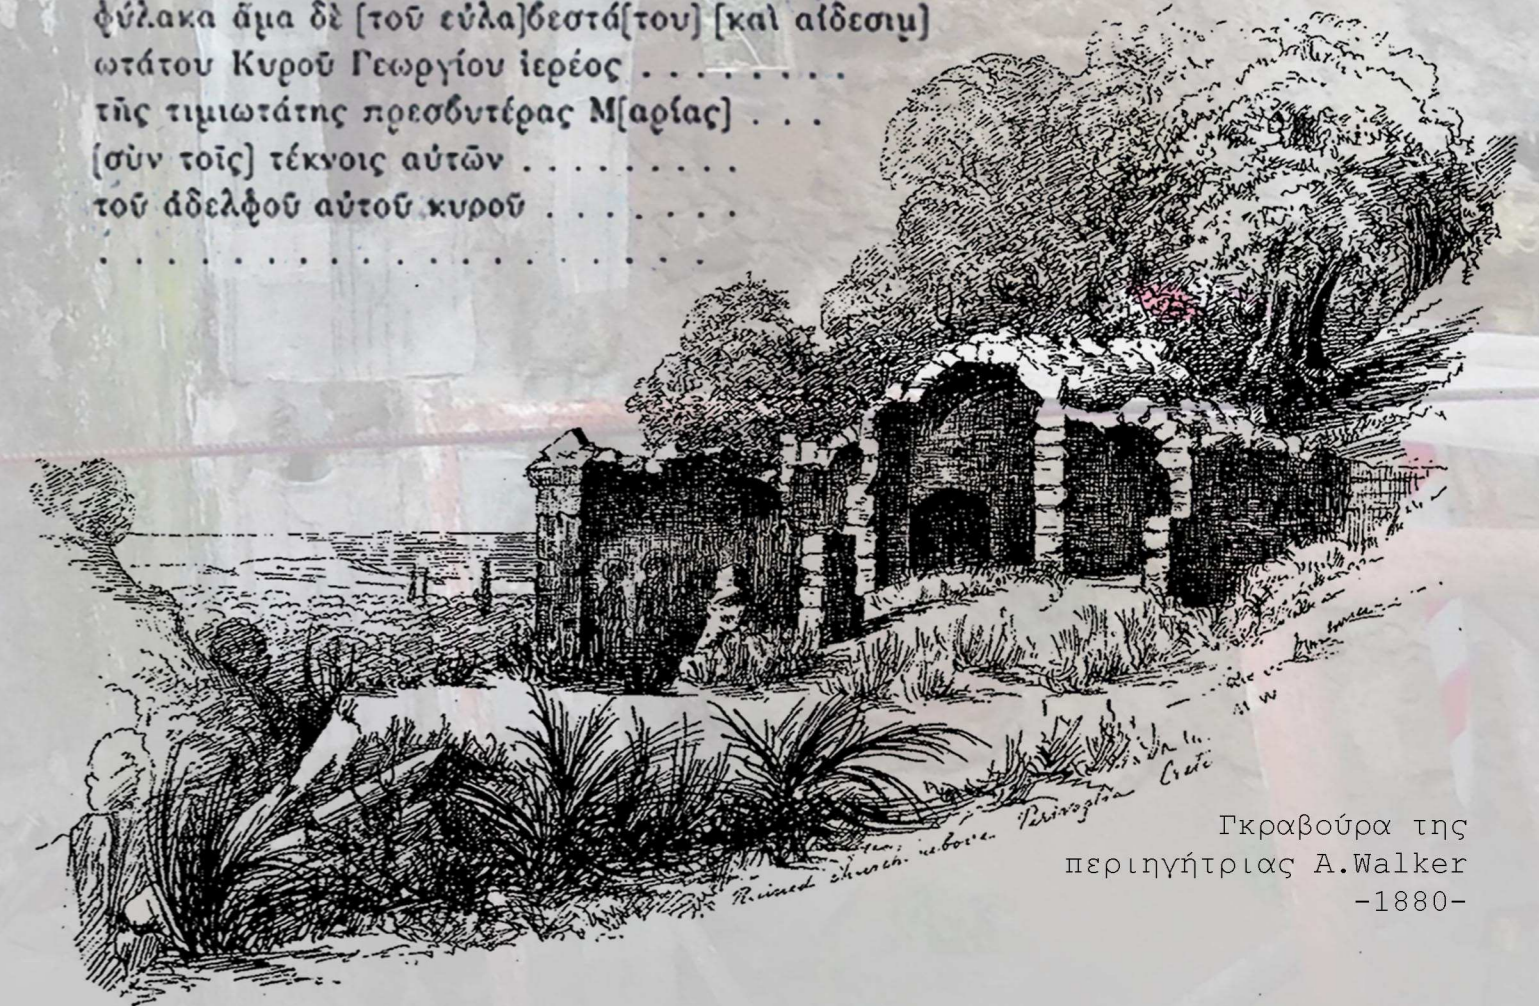 φύλακα ἅμα δὲ [τοῦ εὐλα]βεστά[του] [καὶ αἰδεσιμ]
ωτάτου Κυροῦ Γεωργίου ἱερέος . . . . . . . .
τῆς τιμιωτάτης πρεσβυτέρας Μ[αρίας] . . .
[σὺν τοῖς] τέκνοις αὐτῶν . . . . . . . . .
τοῦ ἀδελφοῦ αὐτοῦ κυροῦ . . . . . . .
. . . . . . . . . . . . . . . . . . . . . . .
Ruined church above Perivoglia Crete
Γκραβούρα της
περιηγήτριας A.Walker
-1880-